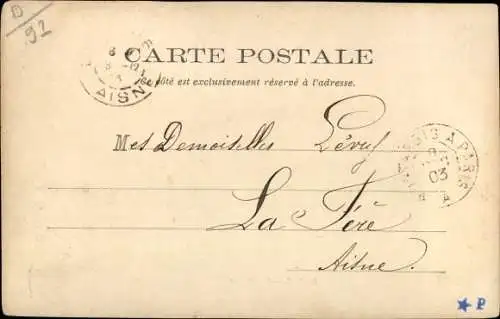 D
92
CARTE POSTALE
Ce côté est exclusivement réservé à l'adresse.
AISNE
Mes Demoiselles Lévy
A PARIS
03
La Fère
Aisne.
★ P